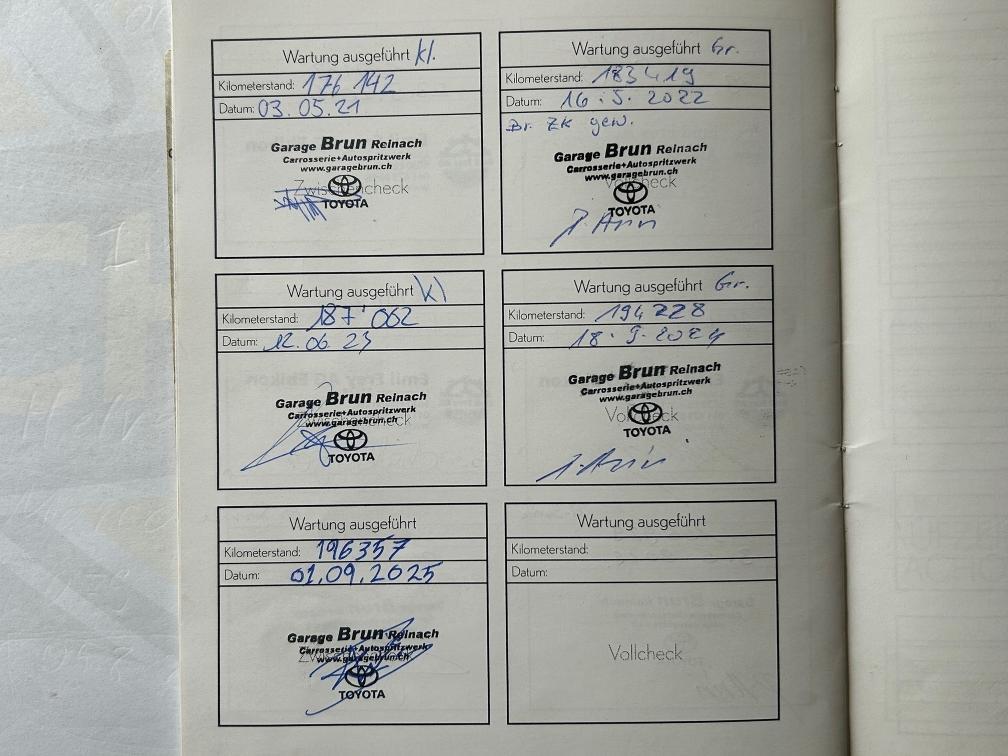 Wartung ausgeführt kl.
Kilometerstand: 176 142
Datum: 03.05.21
Garage Brun Reinach
Carrosserie+Autospritzwerk
www.garagebrun.ch
Zwischencheck
TOYOTA
Wartung ausgeführt Gr.
Kilometerstand: 183419
Datum: 16.5.2022
Br. ZK gew.
Garage Brun Reinach
Carrosserie+Autospritzwerk
www.garagebrun.ch
Vollcheck
TOYOTA
Wartung ausgeführt kl
Kilometerstand: 187'062
Datum: 12.06.23
Garage Brun Reinach
Carrosserie+Autospritzwerk
www.garagebrun.ch
Zwischencheck
TOYOTA
Wartung ausgeführt Gr.
Kilometerstand: 194228
Datum: 18.9.2024
Garage Brun Reinach
Carrosserie+Autospritzwerk
www.garagebrun.ch
Vollcheck
TOYOTA
Wartung ausgeführt
Kilometerstand: 196357
Datum: 01.09.2025
Garage Brun Reinach
Carrosserie+Autospritzwerk
www.garagebrun.ch
Zwischencheck
TOYOTA
Wartung ausgeführt
Kilometerstand:
Datum:
Vollcheck